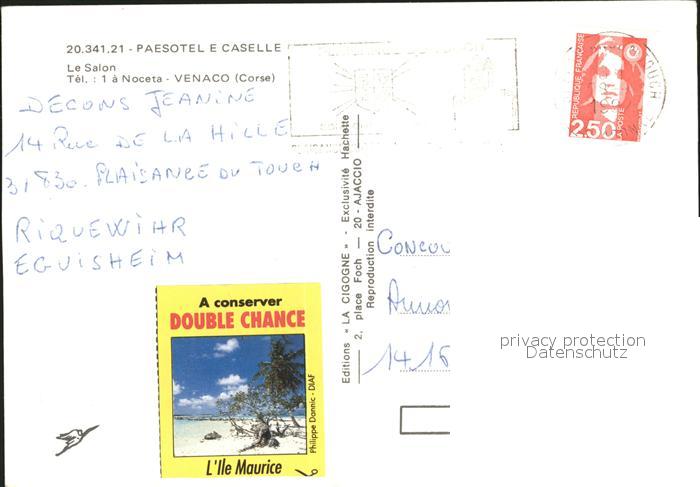 20.341.21 - PAESOTEL E CASELLE
Le Salon
Tél. : 1 à Noceta - VENACO (Corse)
DECONS JEANINE
14 Rue DE LA HILLE
31830. PLAISANCE DU TOUCH
RIQUEWIHR
EGUISHEIM
A conserver
DOUBLE CHANCE
Philippe Dannic - DIAF
L'Ile Maurice
Editions « LA CIGOGNE » - Exclusivité Hachette
2, place Foch — 20 - AJACCIO
Reproduction interdite
REPUBLIQUE FRANÇAISE
2,50
LA POSTE
CONCOU
14 16
privacy protection
Datenschutz